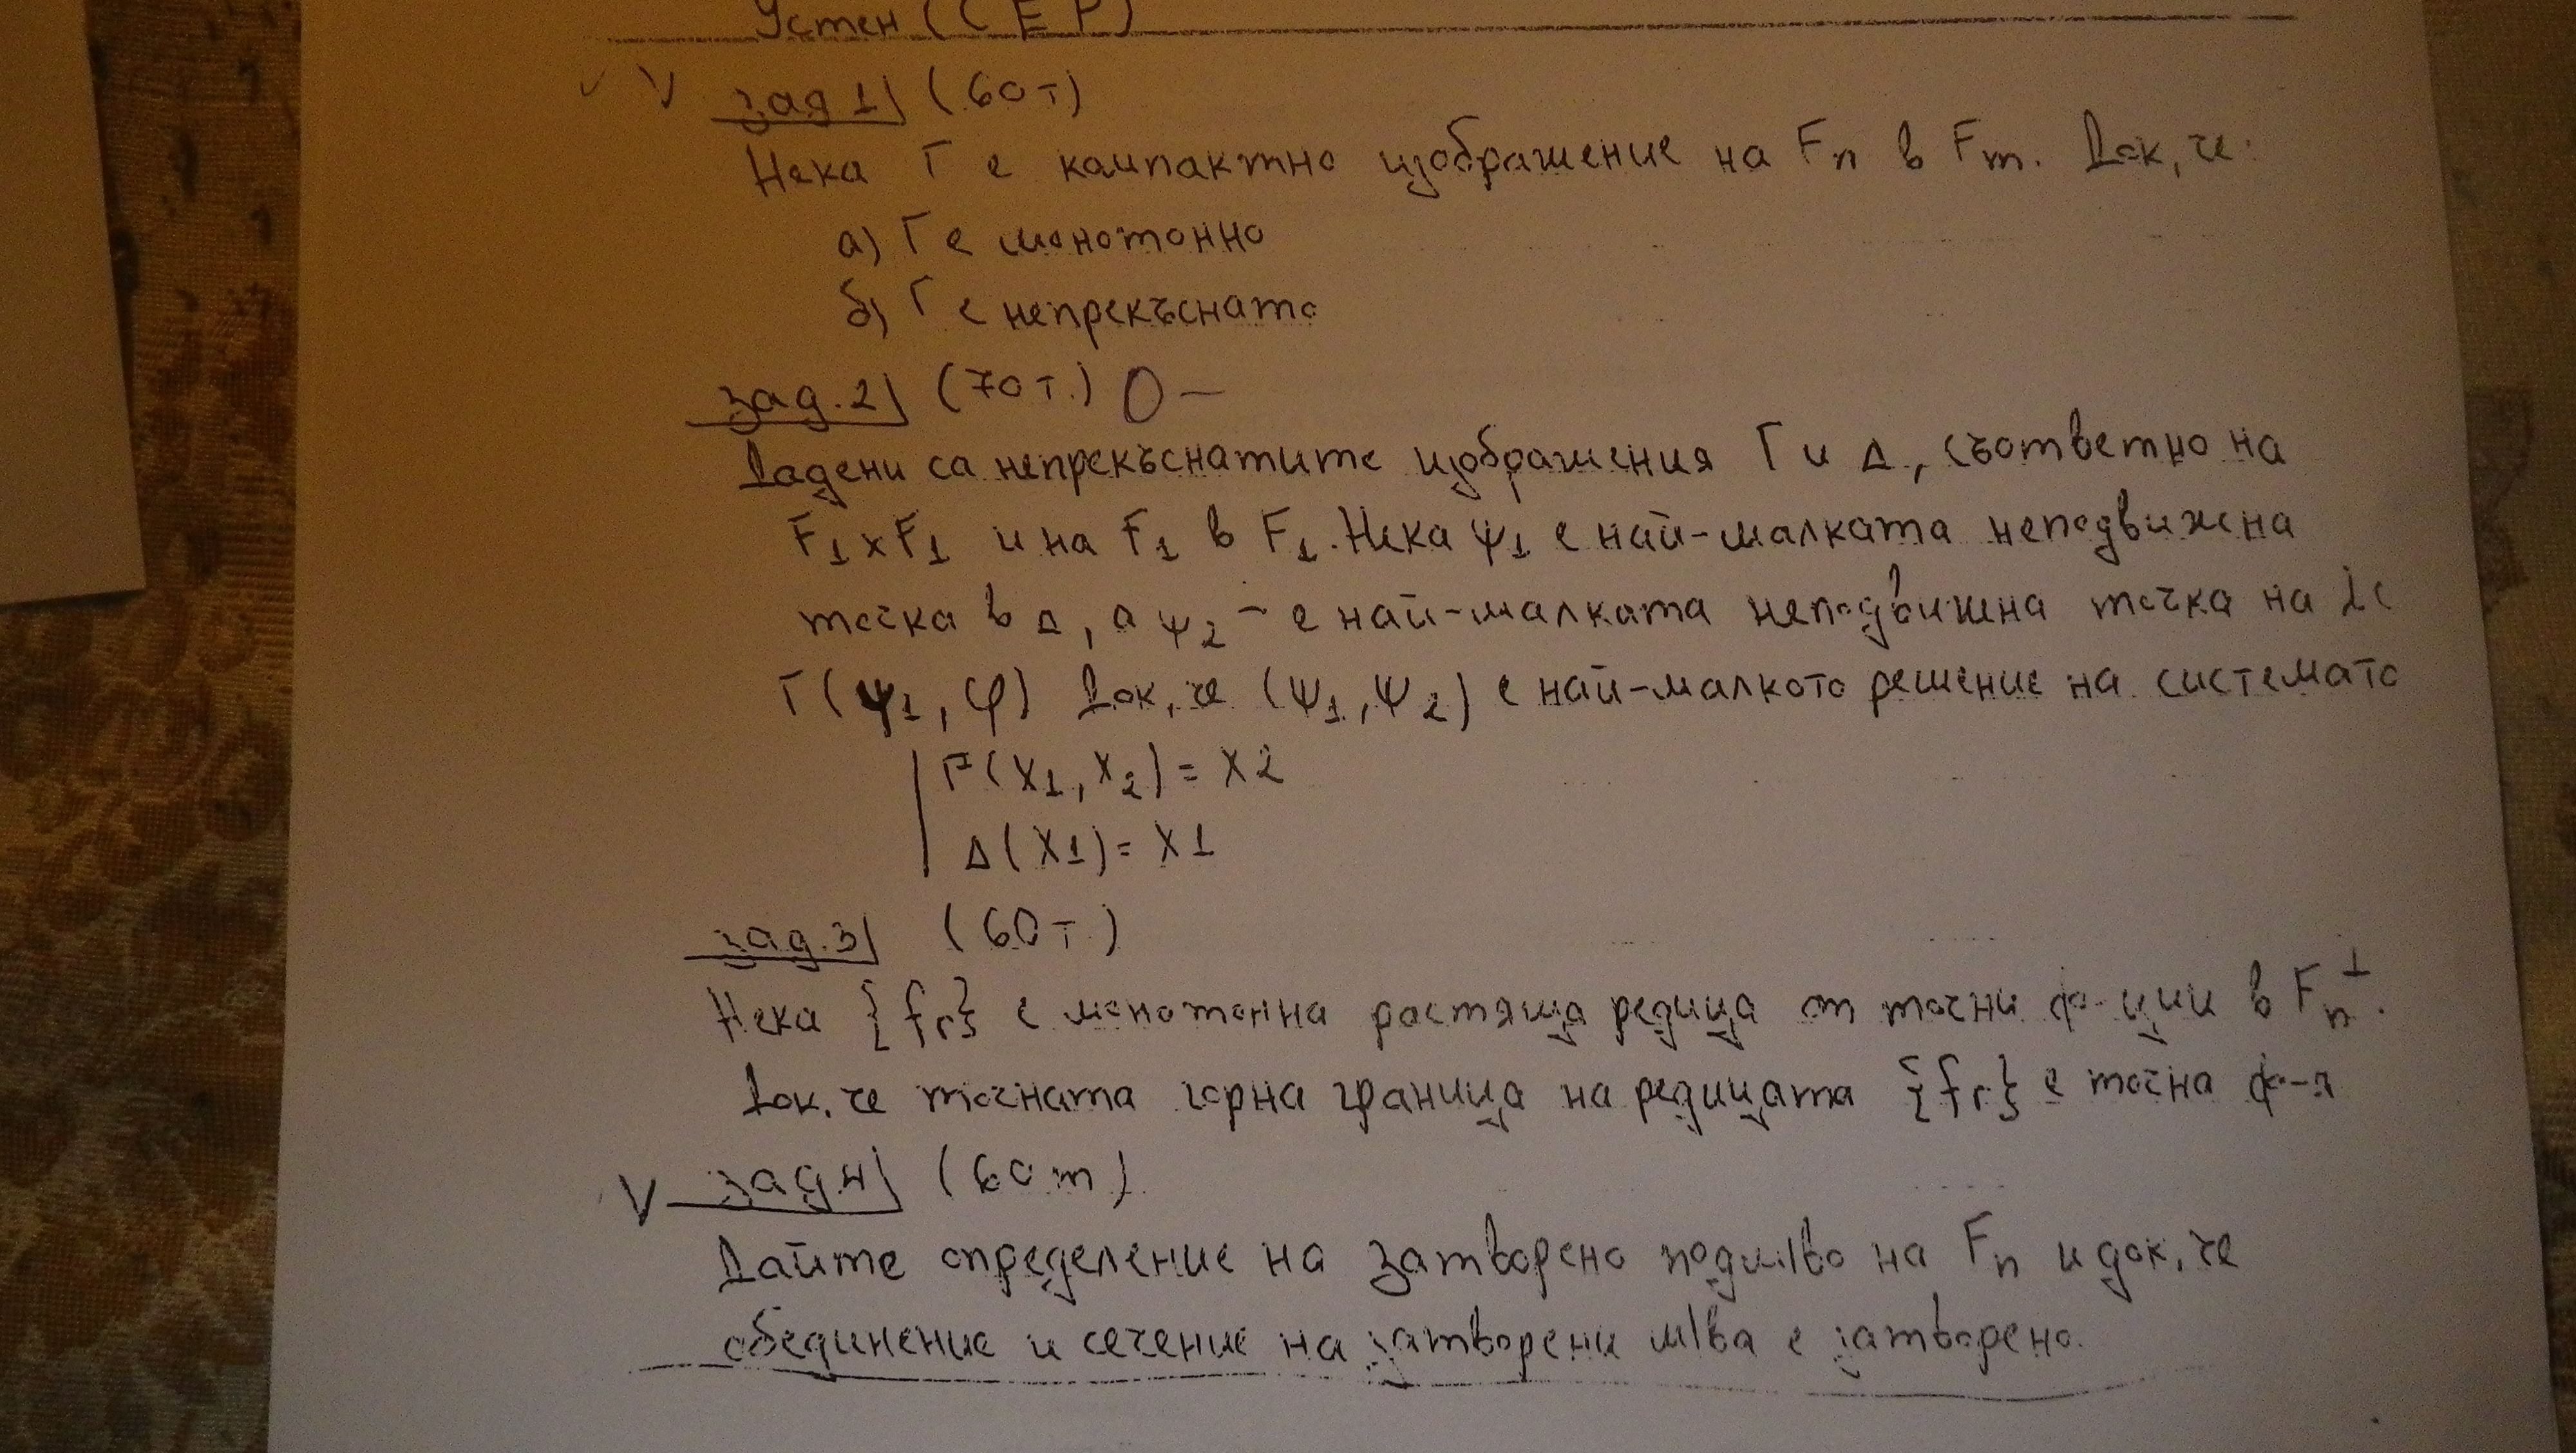 Устен (СЕР)
V зад 1) (60 т)
Нека Г е компактно изображение на Fn в Fm. Док, че:
а) Г е монотонно
б) Г е непрекъснато
зад. 2) (70 т.) 0 –
Дадени са непрекъснатите изображения Г и Δ, съответно на
F1 x F1 и на F1 в F1. Нека ψ1 е най-малката неподвижна
точка в Δ, а ψ2 – е най-малката неподвижна точка на
Г(ψ1, φ) Док, че (ψ1, ψ2) е най-малкото решение на системата
Г(X1, X2) = X2
Δ(X1) = X1
зад. 3) (60 т)
Нека {fr} е монотонна растяща редица от точни ф-ции в Fn⊥.
Док, че точната горна граница на редицата {fr} е точна ф-я
V зад 4) (60 т)
Дайте определение на затворено подм/во на Fn и док, че
обединение и сечение на затворени м/ва е затворено.